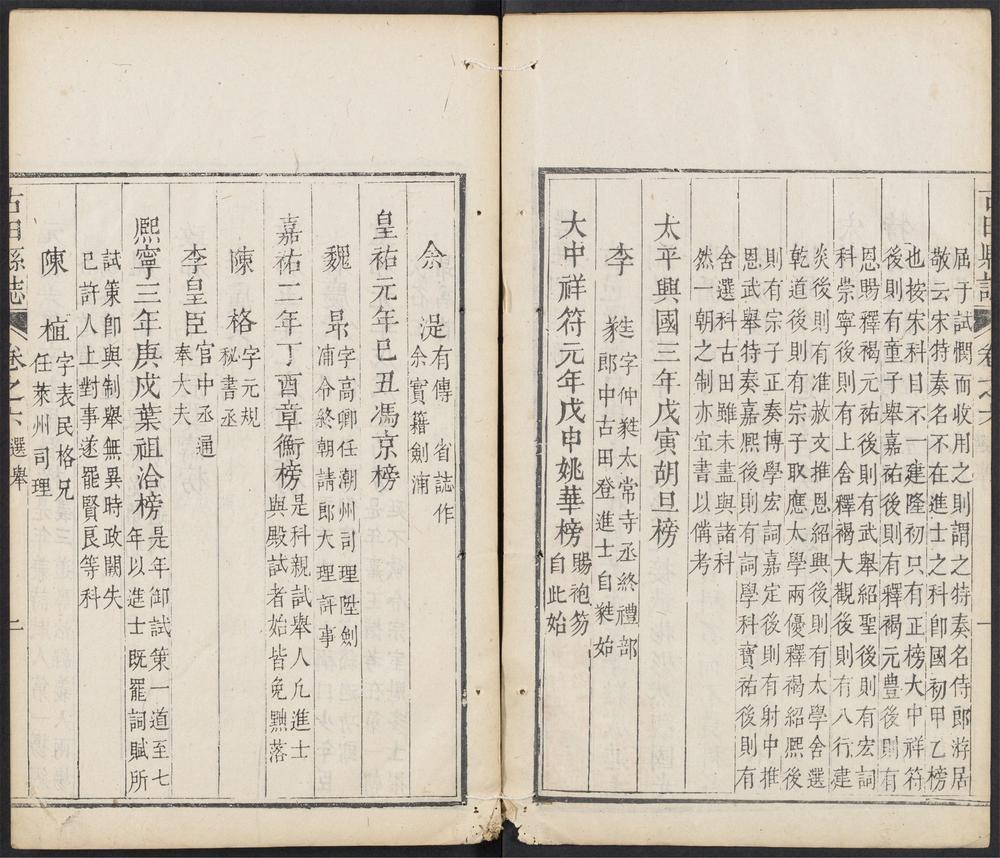 古田縣誌 卷之六 一
屆于試憫而收用之則謂之特奏名侍郎游居
敬云宋特奏名不在進士之科卽國初甲乙榜
也按宋科目不一建隆初只有正榜大中祥符
後則有童子舉嘉祐後則有釋褐元豐後則有
恩賜釋褐元祐後則有武舉紹聖後則有宏詞
科崇寧後則有上舍釋褐大觀後則有八行建
炎後則有准放文推恩紹興後則有太學舍選
乾道後則有宗子取應太學兩優釋褐紹熙後
則有宗子正奏博學宏詞嘉定後則有射中推
恩武舉特奏嘉熙後則有詞學科寶祐後則有
舍選科古田雖未盡與諸科
然一朝之制亦宜書以俻考
太平興國三年戊寅胡旦榜
李㽔 字仲㽔太常寺丞終禮部
郎中古田登進士自㽔始
大中祥符元年戊申姚華榜 賜袍笏
自此始
余湜 有傳 省誌作
余實籍劍浦
皇祐元年巳丑馮京榜
魏昂 字高卿任潮州司理陞劍
浦令終朝請郎大理評事
嘉祐二年丁酉章衡榜 是科親試舉人凢進士
與殿試者始皆免黜落
陳格 字元規
秘書丞
李皇臣 官中丞通
奉大夫
熙寧三年庚戌葉祖洽榜 是年御試第一道至七
年以進士旣罷詞賦所
試策卽與制舉無異時政闕失
巳許人上對事遂罷賢良等科
陳植 字表民格兄
任萊州司理
古田縣誌 卷之六 選舉 二